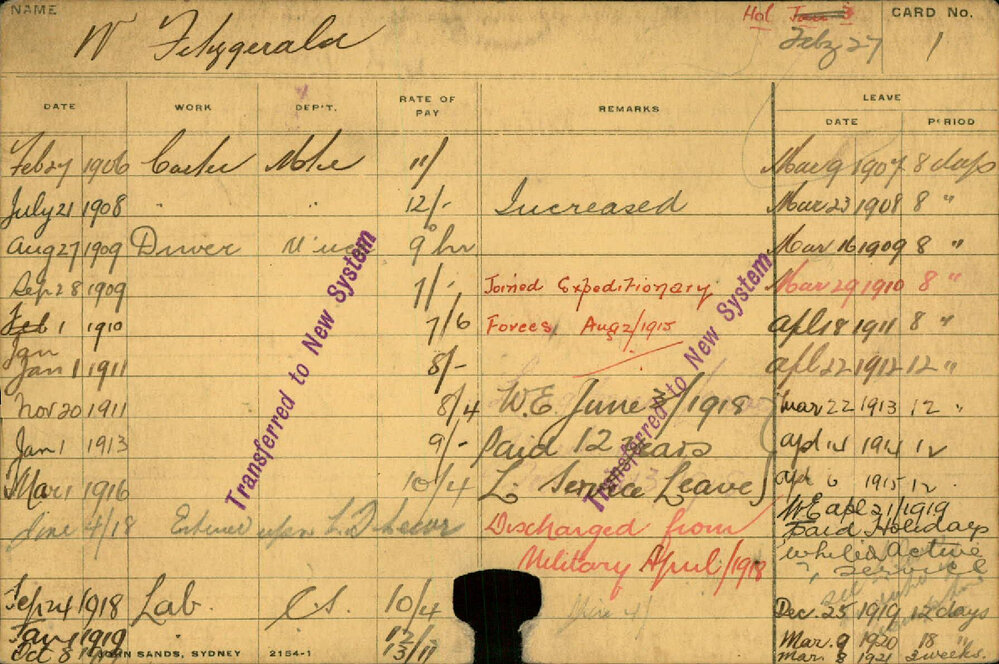 NAME
W Fitzgerald
Hol Jan 3
Feby 27
CARD No.
1
DATE WORK DEP'T. RATE OF PAY REMARKS LEAVE
DATE PERIOD
Feb 27 1906 Carter 11/ Mar 9 1907 8 days
July 21 1908 " " 12/- Increased Mar 23 1908 8 "
Aug 27 1909 Driver 9 hr Mar 16 1909 8 "
Sep 28 1909 7/- Joined Expeditionary Mar 29 1910 8 "
Feb 1 1910 7/6 Forces, Aug 2/1915 Apl 18 1911 8 "
Jan
Jan 1 1911 8/- apl 22 1912 12 "
Nov 20 1911 8/4 W.E. June 3/1918 Mar 22 1913 12 "
Jan 1 1913 9/- Paid 12 years apl 14 1914 12
Mar 1 1916 10/4 L. Service Leave apl 6 1915 12
W E apl 21/1919
June 4/18 Entered upon L. S. Leave Discharged from Paid Holidays
Military April/1918 while active
service
Sep 24 1918 Lab. 10/4 June 4/ Dec. 25 1919 12 days
Jan 1 1919 12/ Mar. 9 1920 18 "
Oct 8 1919 13/11 Mar. 3 1921 3 weeks.
JOHN SANDS, SYDNEY 2154-1
Transferred to New System
Transferred to New System